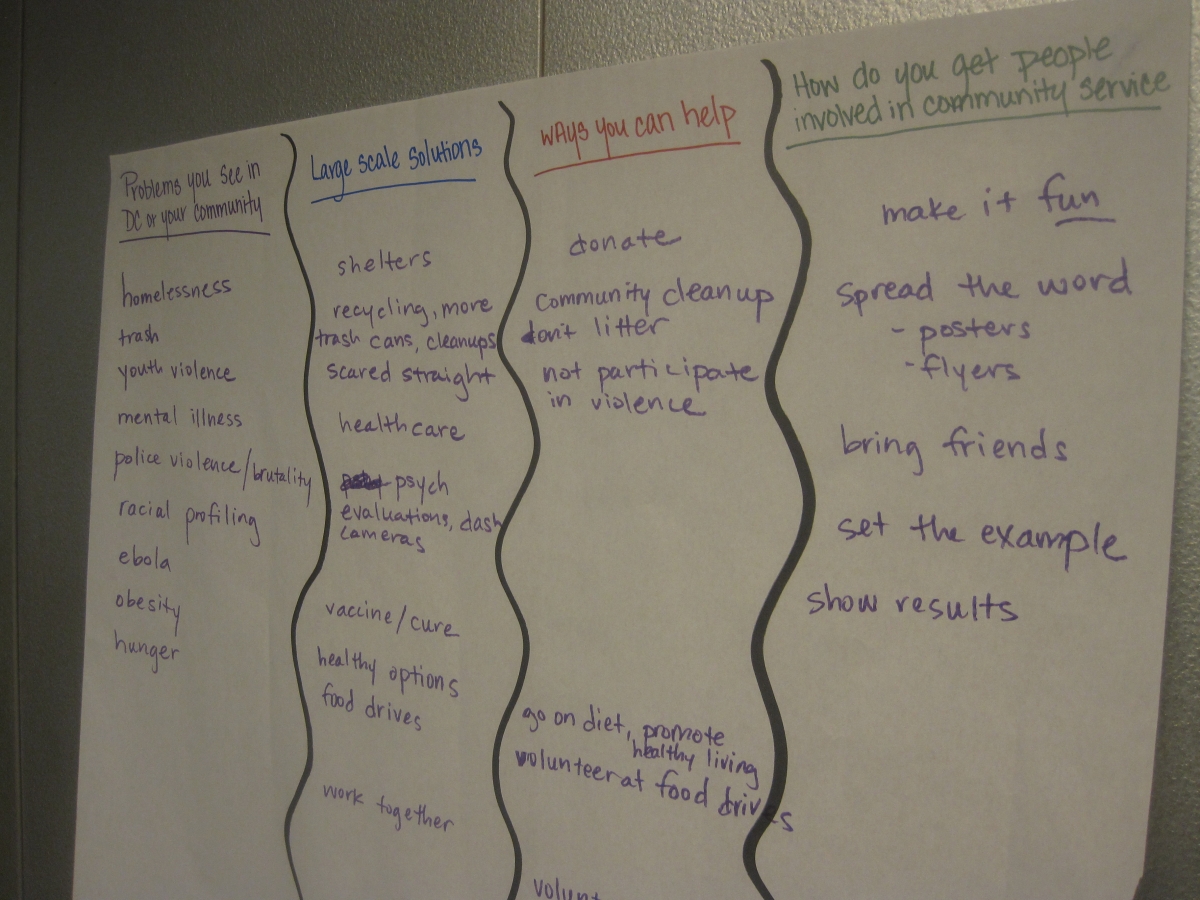 Problems you see in
DC or your community
homelessness
trash
youth violence
mental illness
police violence/brutality
racial profiling
ebola
obesity
hunger
Large scale solutions
shelters
recycling, more
trash cans, cleanups
scared straight
healthcare
psych
evaluations, dash
cameras
vaccine/cure
healthy options
food drives
work together
ways you can help
donate
Community cleanup
don't litter
not participate
in violence
go on diet, promote
healthy living
volunteer at food drives
How do you get people
involved in community service
make it fun
Spread the word
- posters
- flyers
bring friends
set the example
show results